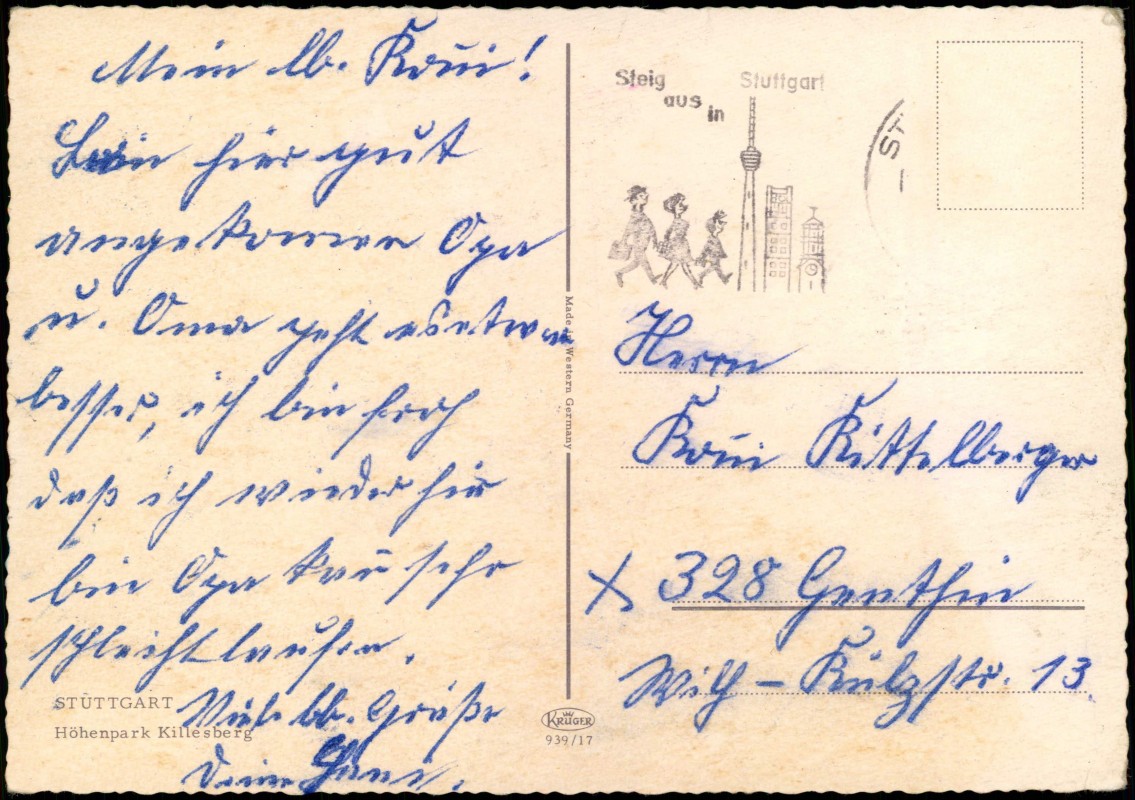 Mein lb. Roni!
Bin hier gut
angekommen Opa
u. Oma geht es etwas
besser, ich bin froh
daß ich wieder hier
bin Opa kan sehr
schlecht laufen.
Viele lb. Grüße
Deine
STUTTGART
Höhenpark Killesberg
Made in Western Germany
KRÜGER
939/17
Steig
aus
in
Stuttgart
ST
Herrn
Roni Kittelberger
X 328 Genthin
Wilh - Külzstr. 13